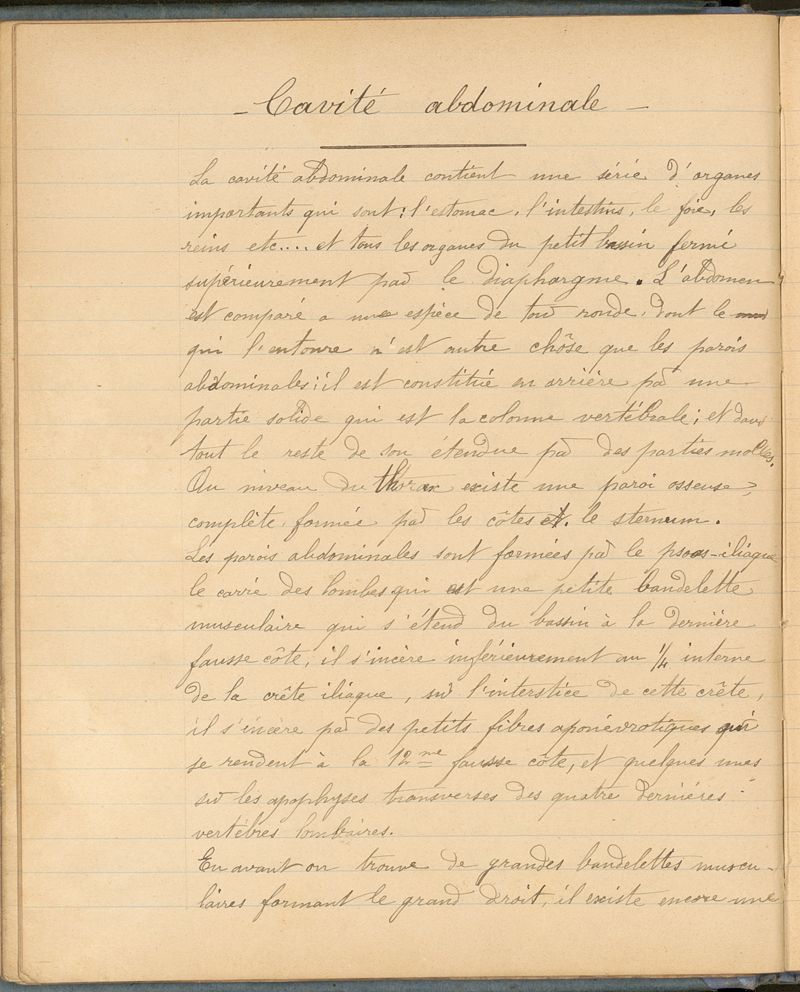 – Cavité abdominale –
La cavité abdominale contient une série d'organes
importants qui sont : l'estomac, l'intestins, le foie, les
reins etc.... et tous les organes du petit bassin fermé
supérieurement par le diaphargme. L'abdomen
est comparé a une espèce de tour ronde, dont le mur
qui l'entoure n'est autre chôse que les parois
abdominales : il est constitué en arrière par une
partie solide qui est la colonne vertébrale ; et dans
tout le reste de son étendue par des parties molles.
Au niveau du thorax existe une paroi osseuse,
complète formée par les côtes et le sternum.
Les parois abdominales sont formées par le psoas-iliaque
le carré des lombes qui est une petite bandelette
musculaire qui s'étend du bassin à la dernière
fausse côte, il s'incère inférieurement au 1/4 interne
de la crête iliaque, sur l'interstice de cette crête,
il s'incère par des petits fibres aponévrotiques qui
se rendent à la 12me fausse côte, et quelques unes
sur les apophyses transverses des quatre dernières
vertèbres lombaires.
En avant on trouve de grandes bandelettes muscu-
laires formant le grand droit, il existe encore une